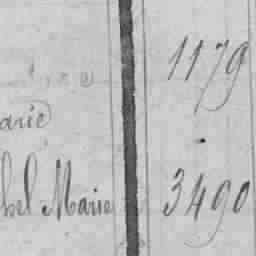 1179
arie
hel Marie 3490